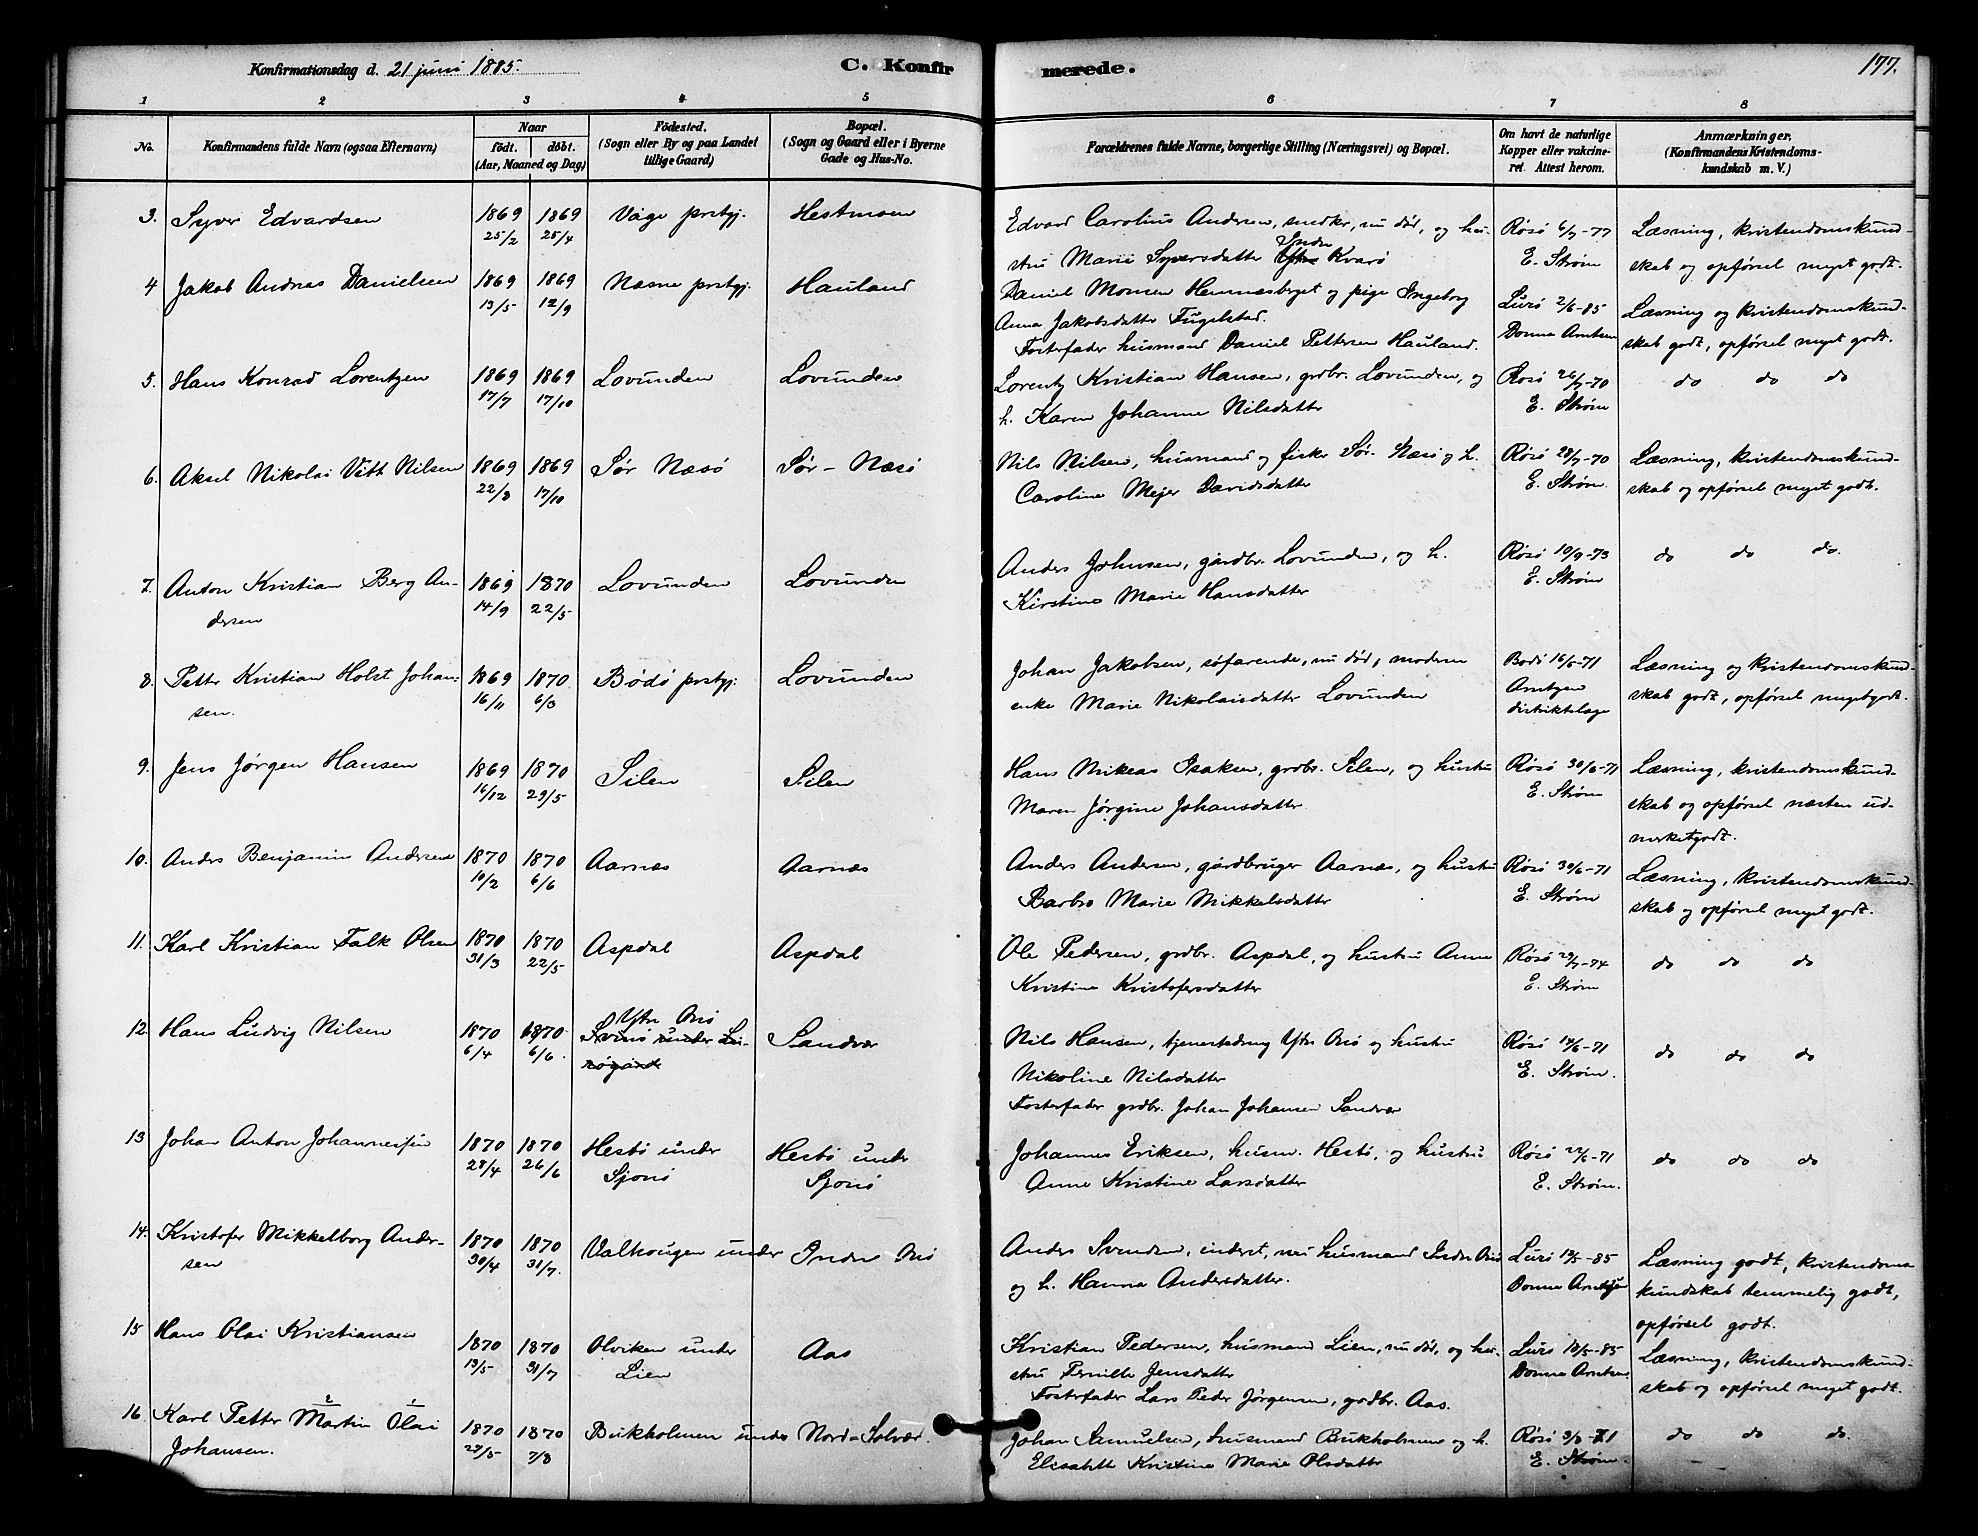 Konfirmationsdag d. 21 juni 1885. C. Konfir merede. 177.
1 2 3 4 5 6 7 8
No. Konfirmandens fulde Navn (ogsaa Efternavn) Naar født. døbt. (Aar, Maaned og Dag)
Fødested. (Sogn eller By og paa Landet tillige Gaard)
Bopæl. (Sogn og Gaard eller i Byerne Gade og Hus-No.
Forældrenes fulde Navne, borgerlige Stilling (Næringsvei) og Bopæl.
Om havt de naturlige Kopper eller vakcineret. Attest herom.
Anmærkninger. (Konfirmandens Kristendomskundskab m. V.)
3. Syver Edvardsen 1869 1869 Våge prstgj. Hestmoen Edvard Carolius Andersen, snedkr, nu død, og hu- Røsø 6/7-77 Læsning, kristendomskund-
25/2 25/4 stru Marie Syversdatter Indre Kvarø E. Strøm skab og opførsel meget godt.
4 Jakob Andreas Danielsen 1869 1869 Nesne prstgj. Hauland Daniel Monsen Hemnesberget og pige Ingeborg Lurø 2/6-85 Læsning og kristendomskund-
13/5 12/9 Anna Jakobsdatter Fugelstad. Donna Arntsen skab godt, opførsel meget godt.
Fosterfader husmand Daniel Pettersen Hauland.
5. Hans Konrad Lorentzen 1869 1869 Lovunden Lovunden Lorentz Kristian Hansen, grdbr. Lovunden, og Røsø 26/7-70 do do do
17/7 17/10 h. Karen Johanne Nilsdatter E. Strøm
6. Aksel Nikolai Vith Nilsen 1869 1869 Sør Næsø Sør-Næsø Nils Nilsen, husmand og fisker Sør-Næsø og h. Røsø 28/7-70 Læsning, kristendomskund-
22/8 17/10 Caroline Mejer Davidsdatter E. Strøm. skab og opførsel meget godt.
7. Anton Kristian Berg An- 1869 1870 Lovunden Lovunden Anders Johnsen, gårdbr. Lovunden, og h. Røsø 10/9-73 do do do.
dersen 14/9 22/5 Kirstine Marie Hansdatter E. Strøm
8. Petter Kristian Holst Johan- 1869 1870 Bødø prstgj. Lovunden Johan Jakobsen, søfarende, nu død, moderen Bodø 16/6-71 Læsning og kristendomskund-
sen. 16/11 6/3 enke Marie Nikolaisdatter Lovunden Arntzen distriktslæge skab godt, opførsel meget godt.
9. Jens Jørgen Hansen 1869 1870 Silen Silen Hans Mikeas Isaksen, grdbr. Silen, og hustru Røsø 30/6-71 Læsning, kristendomskund-
16/12 29/5 Maren Jørgine Johansdatter E. Strøm skab og opførsel næsten ud-
merketgodt.
10. Anders Benjamin Andersen 1870 1870 Aarnæs Aarnæs Anders Andersen, gårdbruger Aarnæs, og hustru Røsø 30/6-71 Læsning, kristendomskund-
10/2 6/6 Barbro Marie Mikkelsdatter E. Strøm skab og opførsel meget godt.
11. Karl Kristian Falk Olsen 1870 1870 Aspdal Aspdal Ole Pedersen, grdbr. Aspdal, og hustru Anne Røsø 29/7-74 do do do
31/3 22/5 Kristine Kristofersdatter E. Strøm
12. Hans Ludvig Nilsen 1870 1870 Ytre Onø Sandvær Nils Hansen, tjenestedreng Ytre Onø og hustru Røsø 19/6-71 do do do
6/4 6/6. Nikoline Nilsdatter E. Strøm.
Fosterfader grdbr. Johan Johansen Sandvær
13 Johan Anton Johannessen 1870 1870 Hestø under Hestø under Johannes Eriksen, husm. Hestø, og hustru Røsø 22/6-71 do do do
28/4 26/6 Sjonø Sjonø Anne Kristine Larsdatter E. Strøm.
14. Kristofer Mikkelborg Ander- 1870 1870 Valhougen under Indre Onø Anders Svendsen, inderst, nu husmand Indre Onø Lurø 19/5-85 Læsning godt, kristendoms
sen 30/4 31/7. og h. Hanna Andersdatter. Donna Arntzen kundskab temmelig godt,
opførsel godt.
15 Hans Olai Kristiansen 1870 1870 Olviken under Aas Kristian Pedersen, husmand Lien, nu død, og hu- Lurø 18/5-85 Læsning, kristendomskund-
13/5 31/7 Lien stru Pernille Jensdatter Donna Arntsen skab og opførsel meget godt.
Fosterfader Lars Peder Jørgensen, godbr. Aas.
16 Karl Petter Martin Olai 1870 1870 Bukholmen under Nord-Solvær Johan Samuelsen, husmand Bukholmen og h. Røsø 3/8-71 do do do.
Johansen. 29/5 7/8 Elisabeth Kristine Marie Olsdatter E. Strøm.